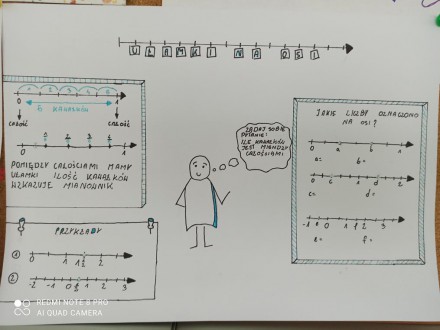 UŁAMKI NA OSI
1 2 3 4 5 6
0 1
6 KAWAŁKÓW
CAŁOŚĆ CAŁOŚĆ
POMIĘDZY CAŁOŚCIAMI MAMY
UŁAMKI ILOŚĆ KAWAŁKÓW
WSKAZUJE MIANOWNIK
ZADAJ SOBIE
PYTANIE:
ILE KAWAŁKÓW
JEST MIĘDZY
CAŁOŚCIAMI
JAKIE LICZBY OZNACZONO
NA OSI?
0 a b 1
a= b=
0 c 1 d 2
c= d=
-1 0 1 2 3
e= f=
PRZYKŁADY
1 0 1 1 1/2 2
2 -2 -1 0 1 2 3
REDMI NOTE 8 PRO
AI QUAD CAMERA